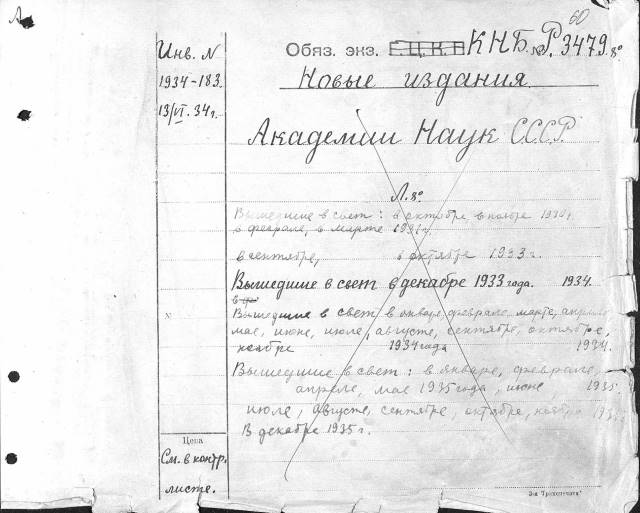 60
Инв. N
1934-183.
13/VI. 34 г.
Обяз. экз. Е.Ц.К.П КНБ. № Р. 3479. 8°
Новые издания
Академии Наук С.С.С.Р.
Л. 8°
Вышедшие в свет: в октябре в ноябре 1930 г.
в феврале, в марте 1931 г.
в сентябре, в октябре 1933 г.
Вышедшие в свет в декабре 1933 года. 1934.
Вышедшие в свет в январе, феврале, марте, апреле
N
мае, июне, июле, августе, сентябре, октябре,
ноябре 1934 года 1934.
Вышедшие в свет: в январе, феврале,
апреле, мае 1935 года, июне, 1935.
июле, августе, сентябре, октябре, ноябре
В декабре 1935 г.
Цена
См. в контр.
листе.